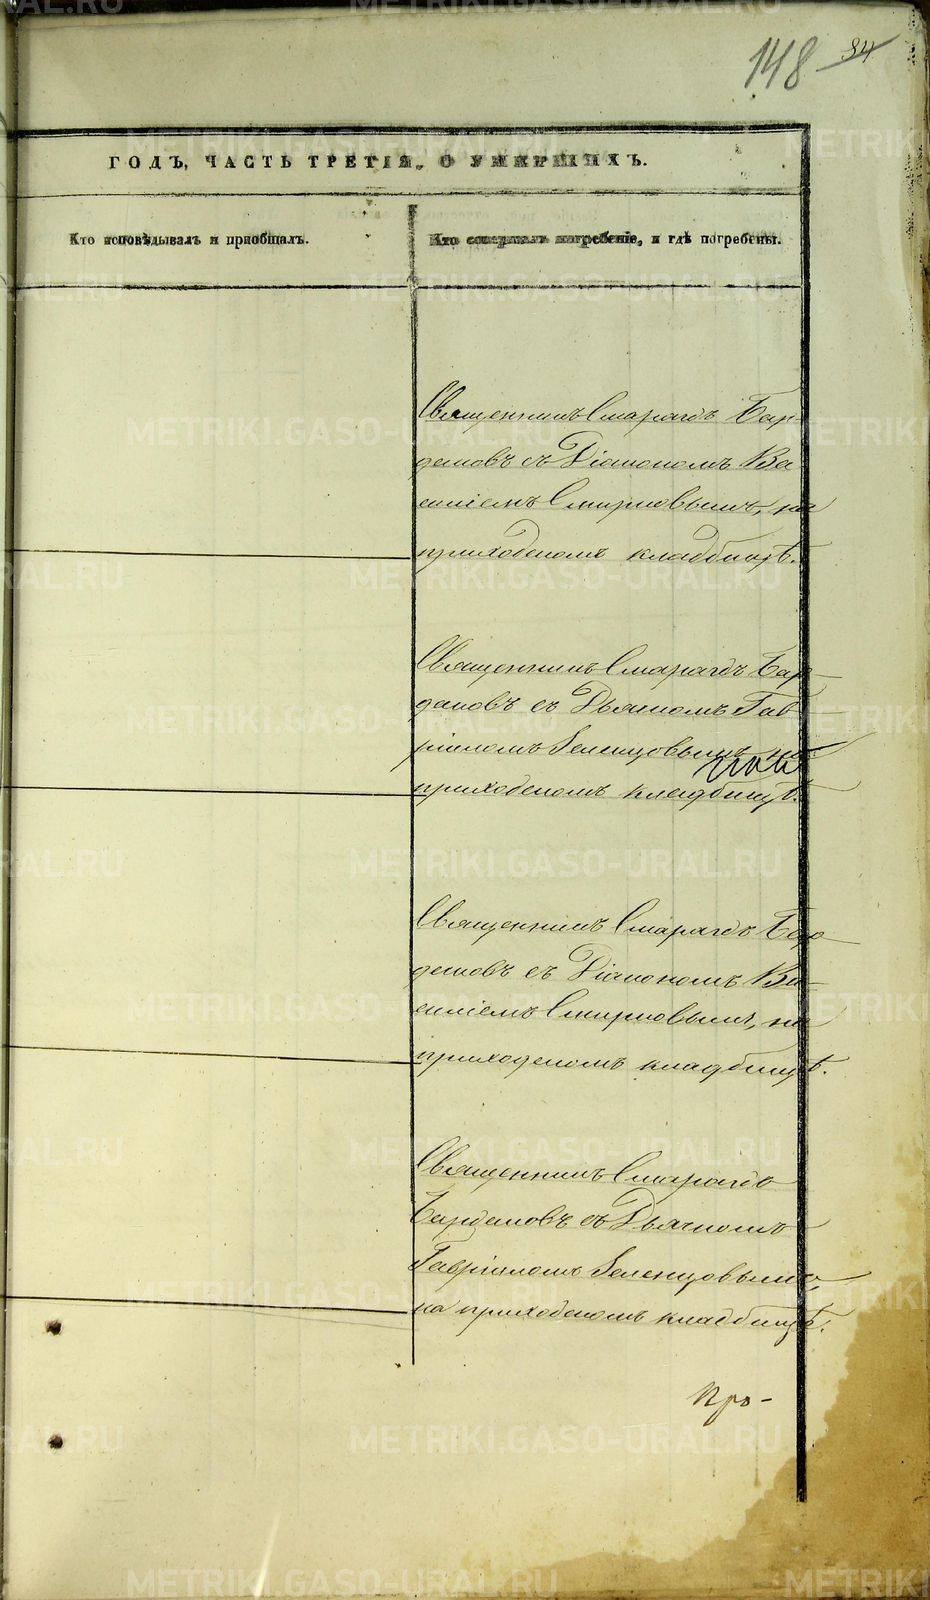 148 84
ГОДЪ, ЧАСТЬ ТРЕТІЯ, О УМЕРШИХЪ.
Кто исповѣдывалъ и пріобщалъ.
Кто совершалъ погребеніе, и гдѣ погребены.
Священникъ Смарагдъ Бар-
дамовъ съ Діакономъ Ва
силіемъ Смирновымъ, на
приходскомъ кладбищѣ.
Священникъ Смарагдъ Бар-
дамовъ съ Дьячкомъ Гав-
ріиломъ Зеленцовымъ на
приходскомъ кладбищѣ.
Священникъ Смарагдъ Бар-
дамовъ съ Діакономъ Ва-
силіемъ Смирновымъ, на
приходскомъ кладбищѣ.
Священникъ Смарагдъ
Бардамовъ съ Дьячкомъ
Гавріиломъ Зеленцовымъ,
на приходскомъ кладбищѣ.
Про-
METRIKI.GASO-URAL.RU